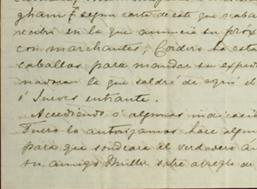 gham f segun carta de este que acaba
recibi en la que anuncia su próx
con marchantes; Cordero ha esta
caballos para mandar su esped
manera la que saldrá de aquí el
ó Jueves entrante.
Accediendo á algunas indicacio
Fuero lo autorizamos hace algun
para que sondeara el verdadero an
su amigo Miller sobre arreglo de